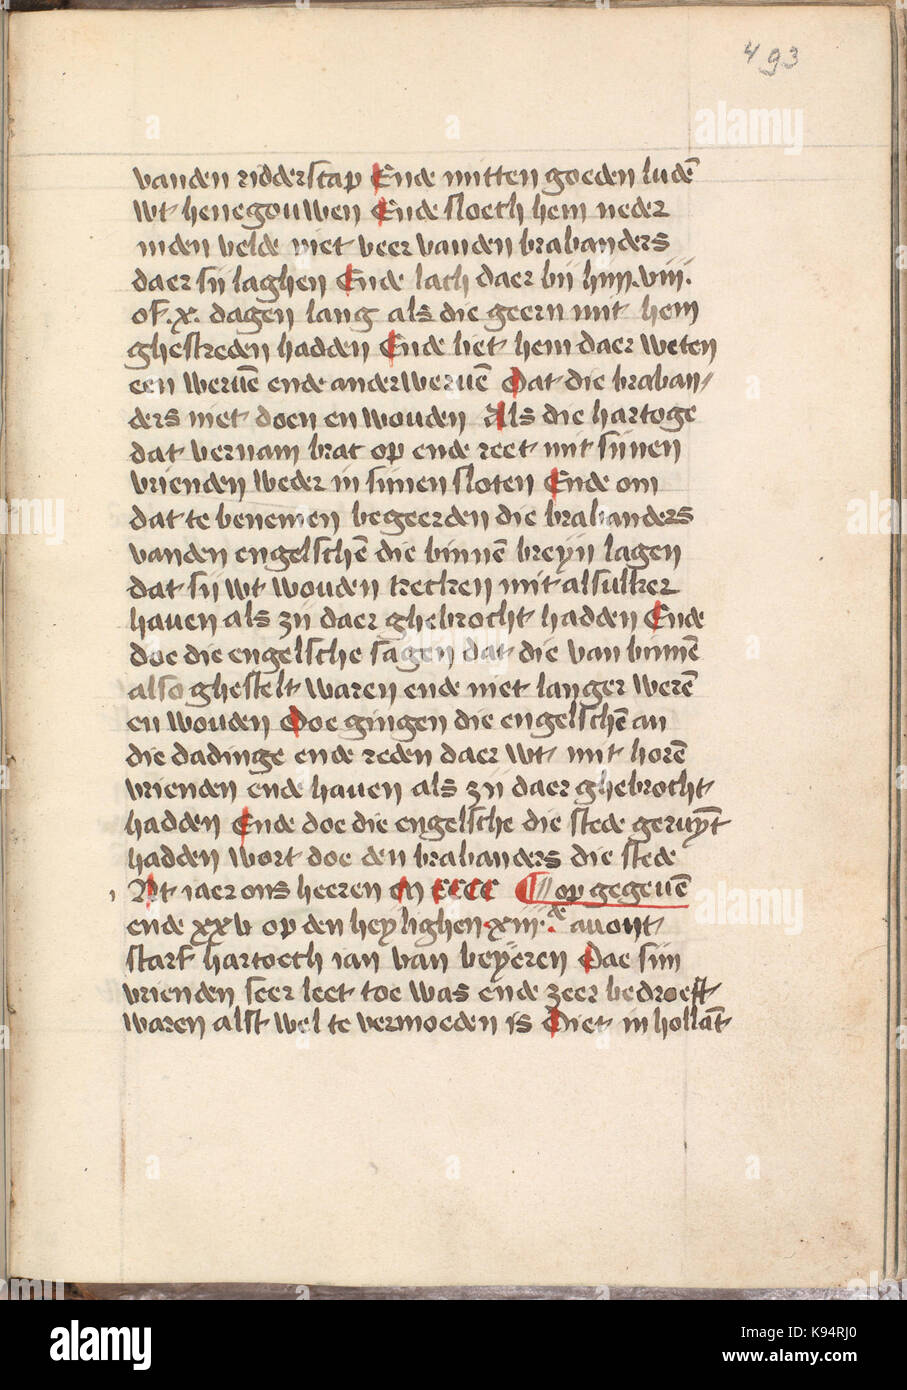 493
vanden ridderscap Ende mitten goeden ludē
wt henegouwen Ende sloech hem neder
inden velde niet veer vanden brabanders
daer sij laghen Ende lach daer bij .viii.
of .x. dagen lang als die geern mit hem
ghestreden hadden Ende liet hem daer weten
een weruē ende anderweruē Dat die braban⸗
ders niet doen en wouden Als die hartoge
dat vernam brac op ende reet mit sijnen
vrienden weder in sinen sloten Ende om
dat te benemen begeerden die brabanders
vanden engelschē die binnē breyn lagen
dat sij wt wouden trecken mit alsulker
hauen als zij daer ghebrocht hadden Ende
doe die engelsche sagen dat die van binnē
also ghestelt waren ende niet langer werē
en wouden Doe gingen die engelschē an
die dadinge ende reden daer wt mit horē
vrienden ende hauen als zij daer ghebrocht
hadden Ende doe die engelsche die stede geruỹt
hadden wort doe den brabanders die stede
Int iaer ons heeren M CCCC ¶ op gegeuē
ende xxv op den heylighen xiij.de auont
starf hartoech ian van beyeren Dae sijn
vrienden seer leet toe was ende zeer bedroeft
waren alst wel te vermoeden is Diet in hollāt
alamy
Image ID: K94RJ0
www.alamy.com